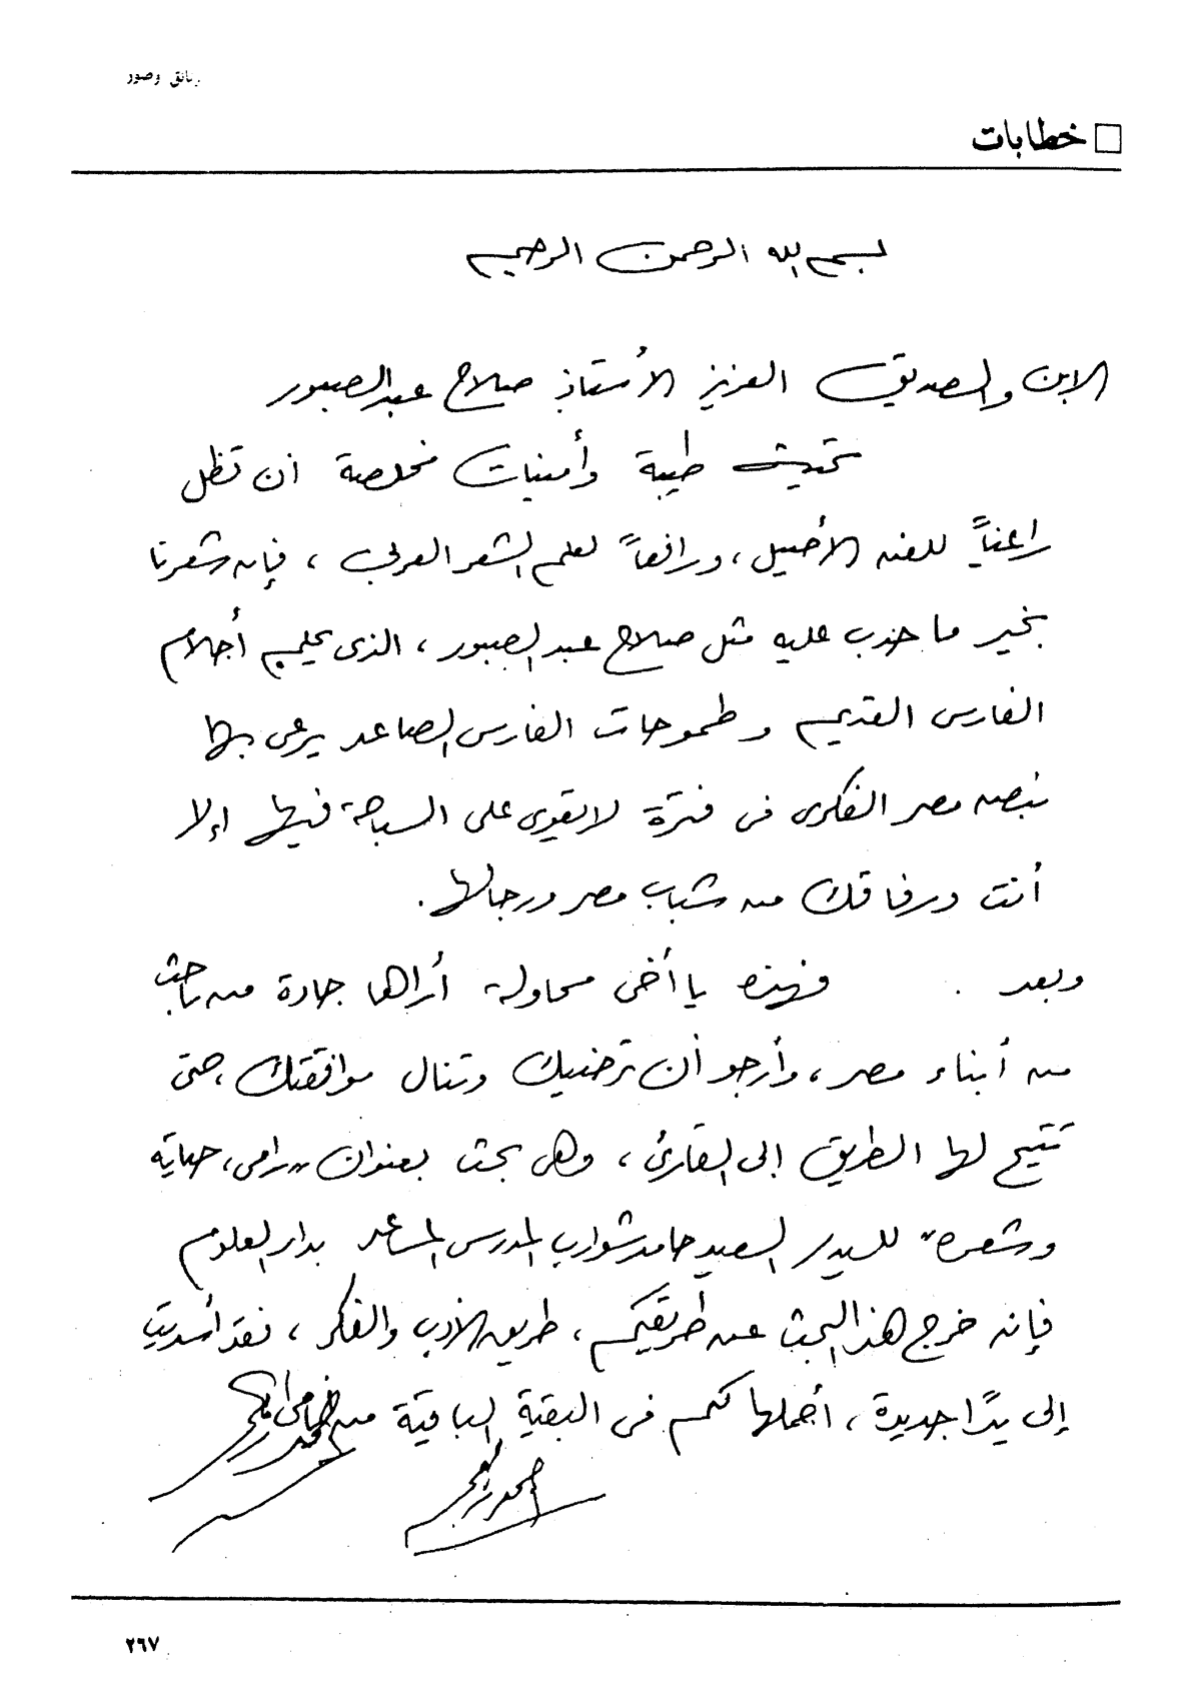 وثائق وصور
خطابات
بسم الله الرحمن الرحيم
الابن والصديق العزيز الأستاذ صلاح عبد الصبور
تحيات طيبة وأمنيات مخلصة أن تظل
راعياً للفن الأصيل، ورافعاً لعلم الشعر العربى، فإن شعرنا
بخير ما حدب عليه مثل صلاح عبد الصبور، الذى يحلم أحلام
الفارس القديم وطموحات الفارس الصاعد يرعى بها
نبض مصر الفكرى فى فترة لا يقوى على السباحة فيها إلا
أنت ورفاقك من شباب مصر ورجالها.
وبعد . فهذه يا أخى محاولة أراها جادة من باحث
من أبناء مصر، وأرجو أن ترضيك وتنال موافقتك، حتى
تتيح لها الطريق إلى القارئ، وهى بحث بعنوان "رامى، حياته
وشعره" للسيد/ السعيد حامد شوارب المدرس المساعد بدار العلوم
فإن خرج هذا البحث عن طريقكم، طريق الأدب والفكر، فقد أسديت
إلى يدًا جديدة، أحملها لكم فى البقية الباقية من
٢٦٧